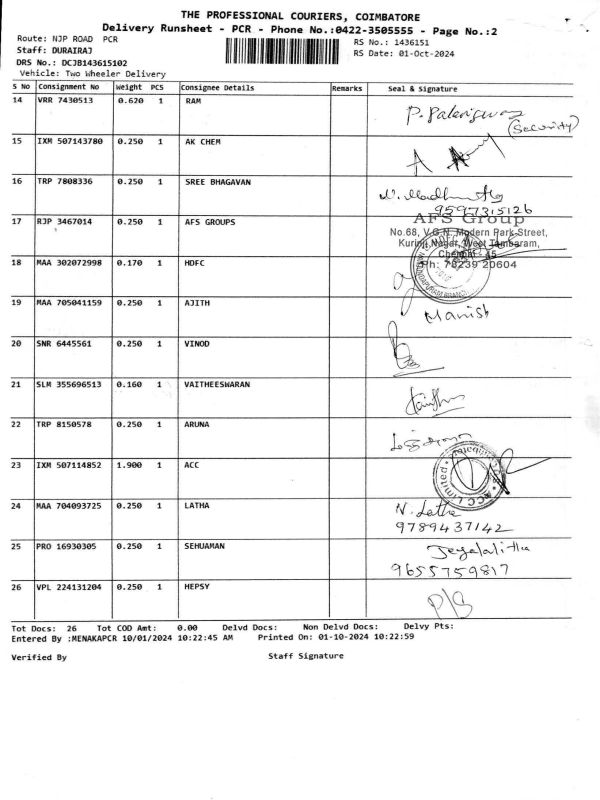 THE PROFESSIONAL COURIERS, COIMBATORE
Delivery Runsheet - PCR - Phone No.:0422-3505555 - Page No.:2
Route: NJP ROAD PCR
RS No.: 1436151
Staff: DURAIRAJ
RS Date: 01-Oct-2024
DRS No.: DCJB143615102
Vehicle: Two Wheeler Delivery
S No Consignment No Weight PCS Consignee Details Remarks Seal & Signature
14 VRR 7430513 0.620 1 RAM
(Security)
15 IXM 507143780 0.250 1 AK CHEM
16 TRP 7808336 0.250 1 SREE BHAGAVAN
9597315126
17 RJP 3467014 0.250 1 AFS GROUPS
AFS Group
No.68, V.G.N. Modern Park Street,
Kurinji Nagar, West Tambaram,
Chennai - 45
Ph: 78239 20604
18 MAA 302072998 0.170 1 HDFC
19 MAA 705041159 0.250 1 AJITH
Manish
20 SNR 6445561 0.250 1 VINOD
21 SLM 355696513 0.160 1 VAITHEESWARAN
22 TRP 8150578 0.250 1 ARUNA
23 IXM 507114852 1.900 1 ACC
ACC Limited
24 MAA 704093725 0.250 1 LATHA
N. Latha
9789437142
25 PRO 16930305 0.250 1 SEHUAMAN
Jeyalalitha
9655759817
26 VPL 224131204 0.250 1 HEPSY
Tot Docs: 26 Tot COD Amt: 0.00 Delvd Docs: Non Delvd Docs: Delvy Pts:
Entered By :MENAKAPCR 10/01/2024 10:22:45 AM Printed On: 01-10-2024 10:22:59
Verified By Staff Signature